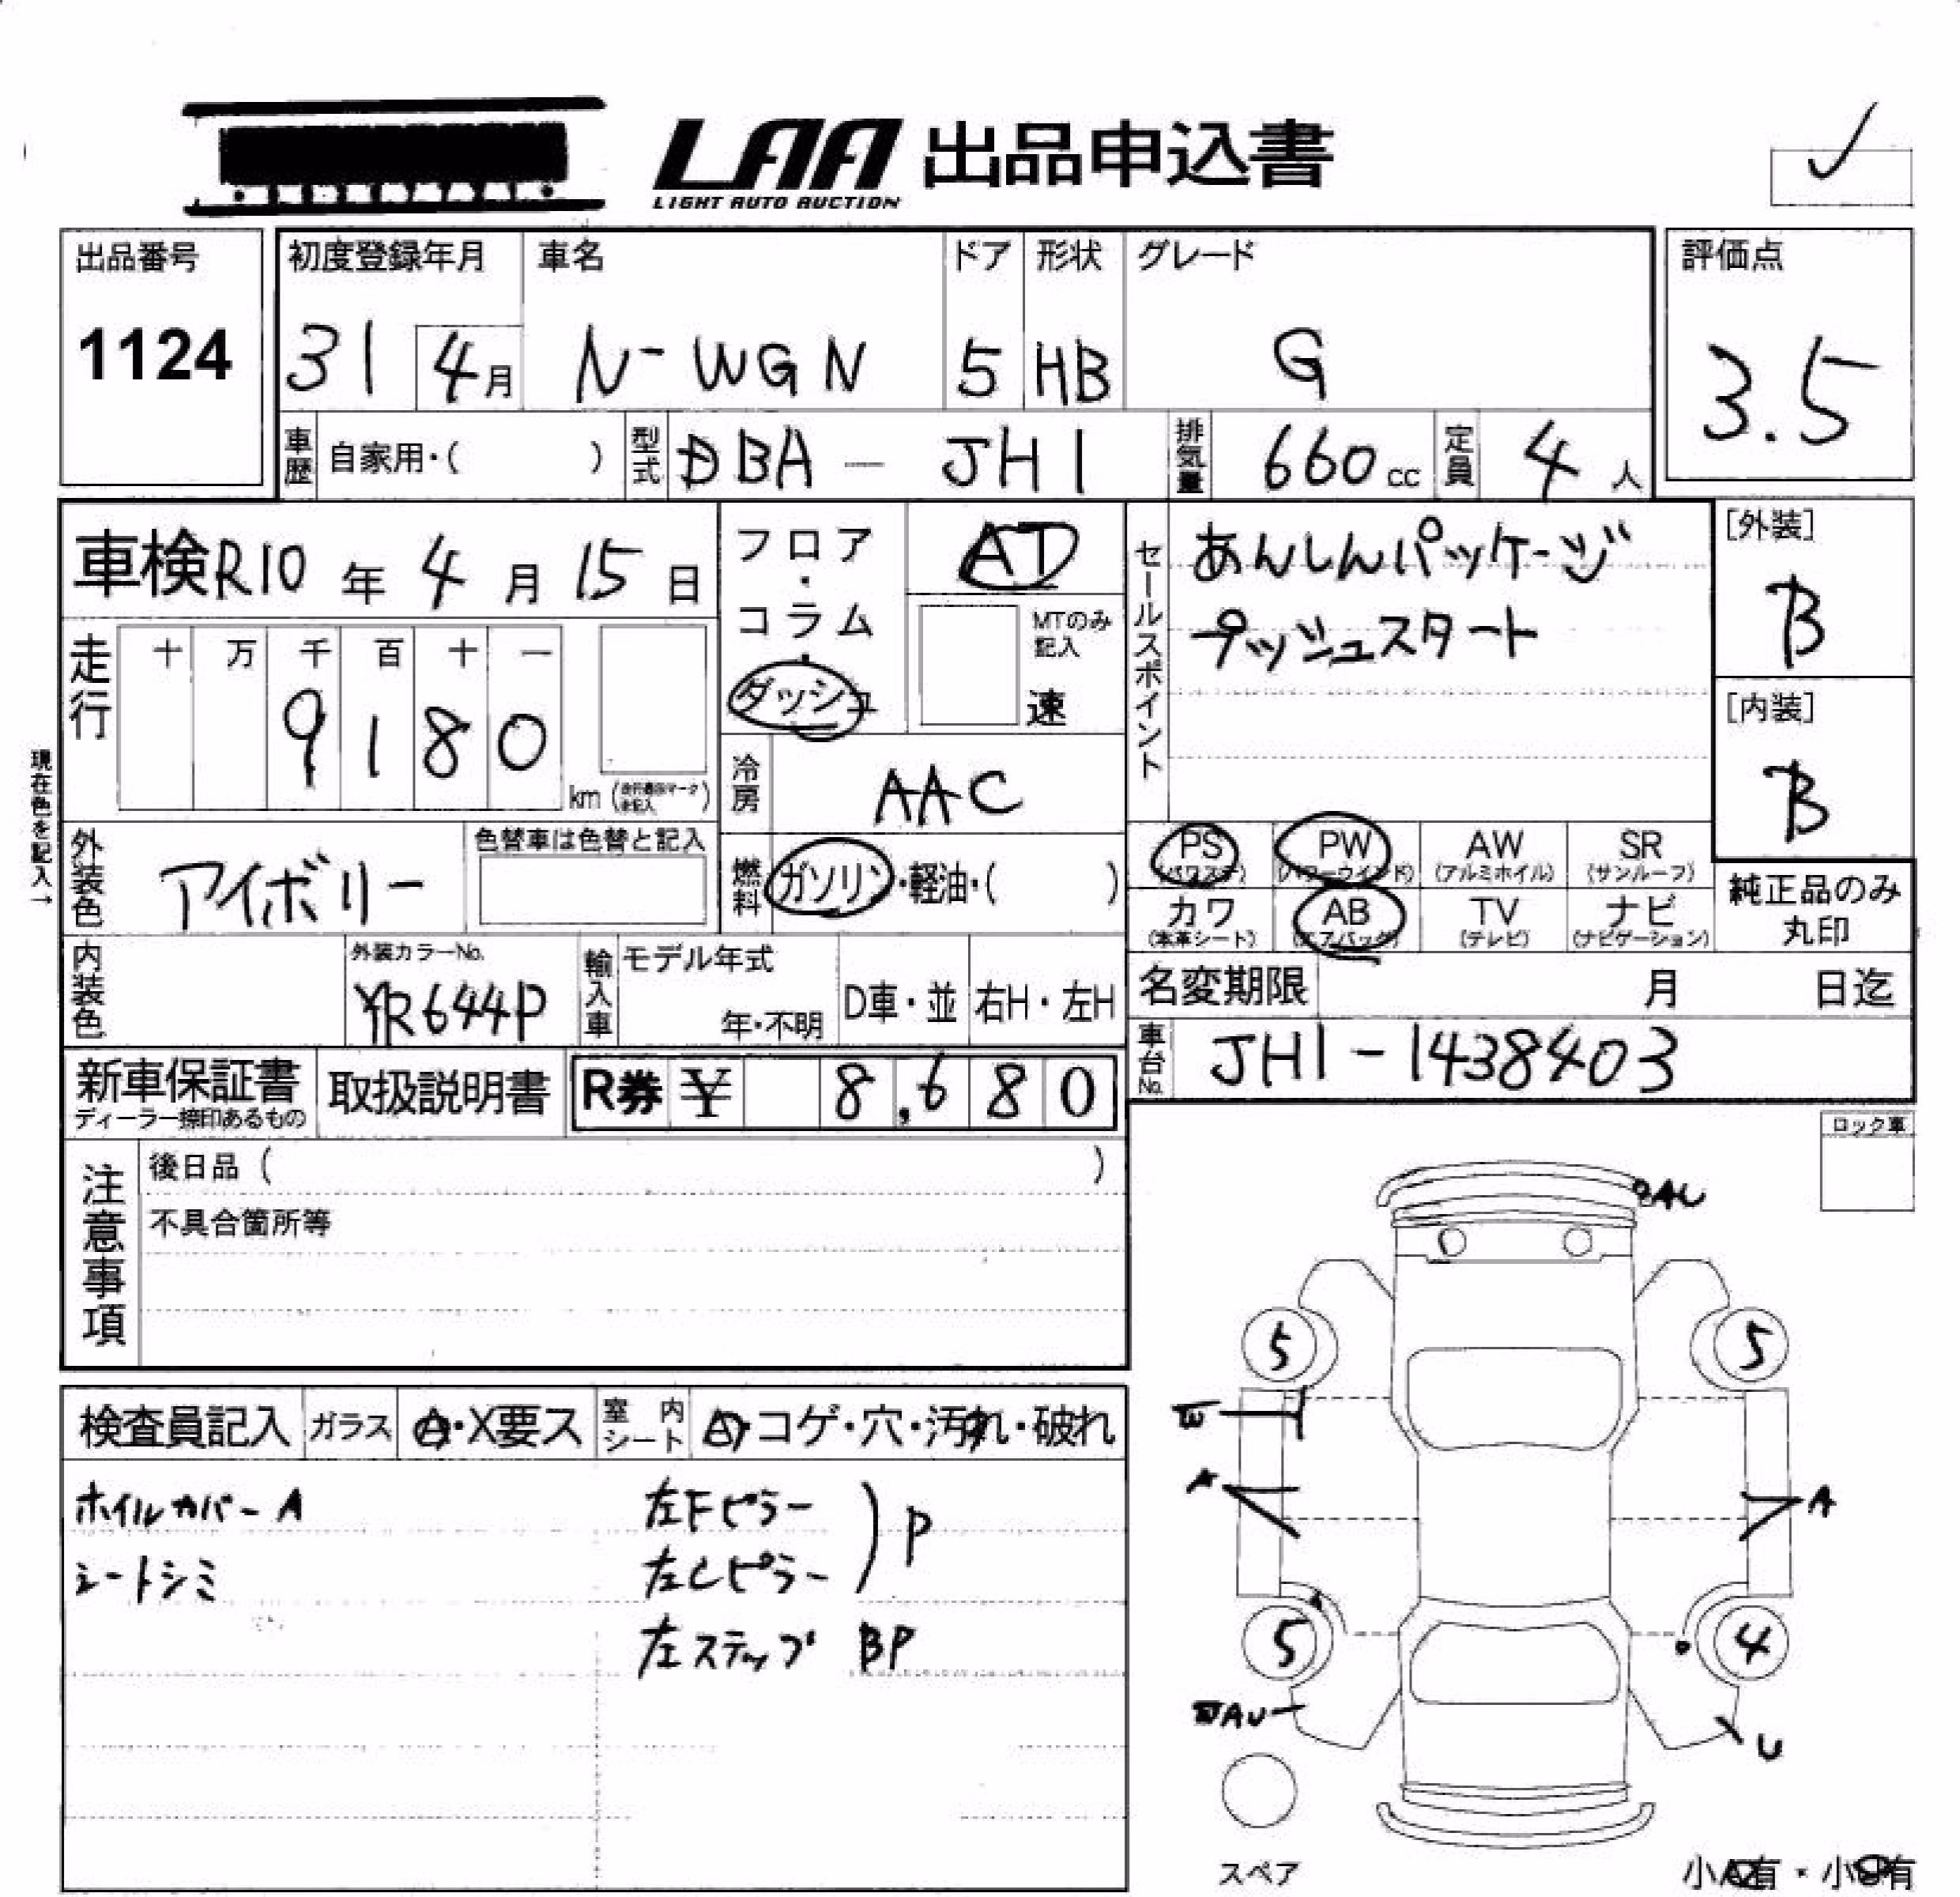 LAA 出品申込書
LIGHT AUTO AUCTION
出品番号
1124
初度登録年月
31 4月
車名
N-WGN
ドア
5
形状
HB
グレード
G
評価点
3.5
車歴 自家用・( )
型式 DBA - JH1
排気量 660 cc
定員 4 人
車検 R10 年 4 月 15 日
走行
十 万 千 百 十 一
9 1 8 0
km
フロア・コラム・ダッシュ
AT
MTのみ記入
速
冷房 AAC
燃料 ガソリン・軽油・( )
セールスポイント
あんしんパッケージ
プッシュスタート
[外装]
B
[内装]
B
現在色を記入→
外装色 アイボリー
色替車は色替と記入
PS (パワステ)
PW (パワーウインド)
AW (アルミホイル)
SR (サンルーフ)
カワ (本革シート)
AB (エアバッグ)
TV (テレビ)
ナビ (ナビゲーション)
純正品のみ
丸印
内装色
外装カラーNo.
YR644P
輸入車
モデル年式
年・不明
D車・並
右H・左H
名変期限 月 日迄
車台No. JH1-1438403
新車保証書
ディーラー捺印あるもの
取扱説明書
R券 ¥ 8,680
注意事項
後日品 ( )
不具合箇所等
ロック車
検査員記入
ガラス
A・X要ス
室内シート
A・コゲ・穴・汚れ・破れ
ホイルカバーA
シートシミ
左Fピラー
左Cピラー
) P
左ステップ BP
AU
5
5
W
A
A
5
4
AU
U
スペア
小A有・小B有